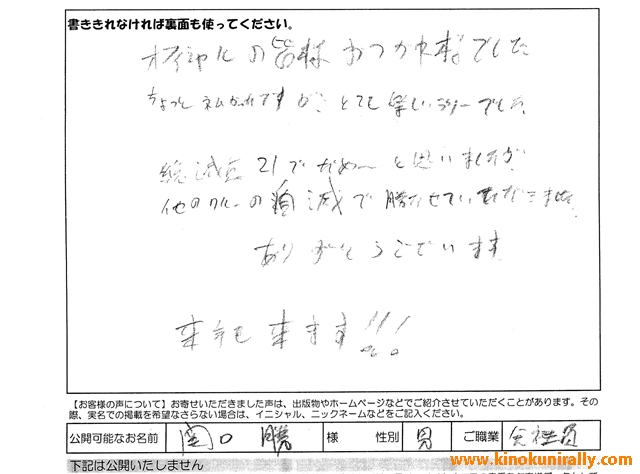 書ききれなければ裏面も使ってください。
オフィシャルの皆様 おつかれ様でした
ちょっとネムかったですが、とても楽しいラリーでした。
総減点21でだめ〜と思いましたが
他のクルーの自滅で勝たせていただきました
ありがとうございます
来年も来ます!!!
【お客様の声について】お寄せいただきました声は、出版物やホームページなどでご紹介させていただくことがあります。その
際、実名での掲載を希望なさらない場合は、イニシャル、ニックネームなどをご記入ください。
公開可能なお名前 関口 勝 様 性別 男 ご職業 会社員
下記は公開いたしません
www.kinokunirally.com